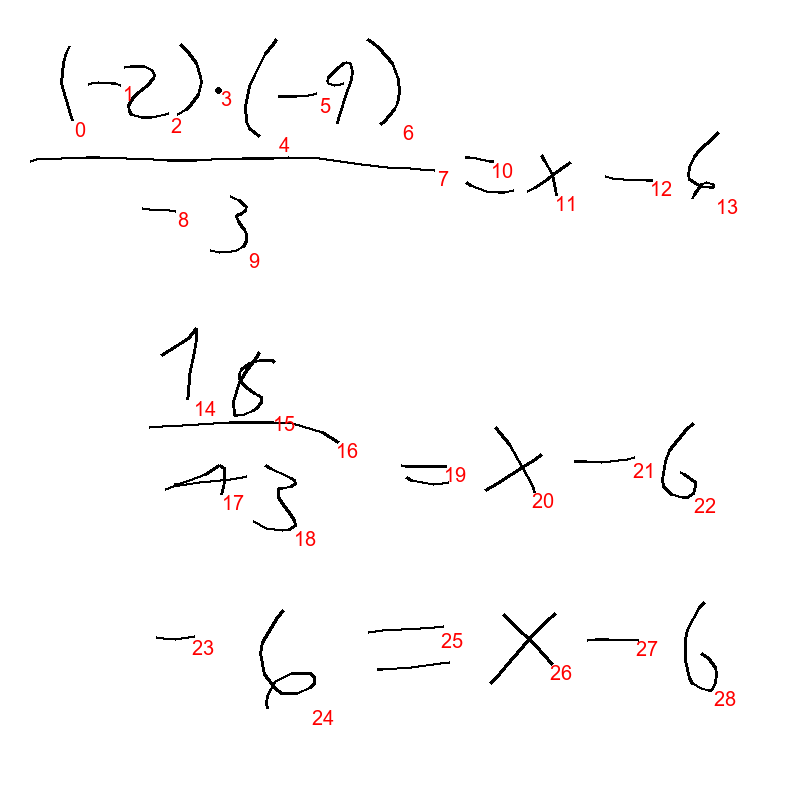 (-2)·(-9)
7
-3
= x - 6
0 1 2 3 4 5 6 8 9 10 11 12 13
18
-3
= x - 6
14 15 16 17 18 19 20 21 22
-6 = x - 6
23 24 25 26 27 28